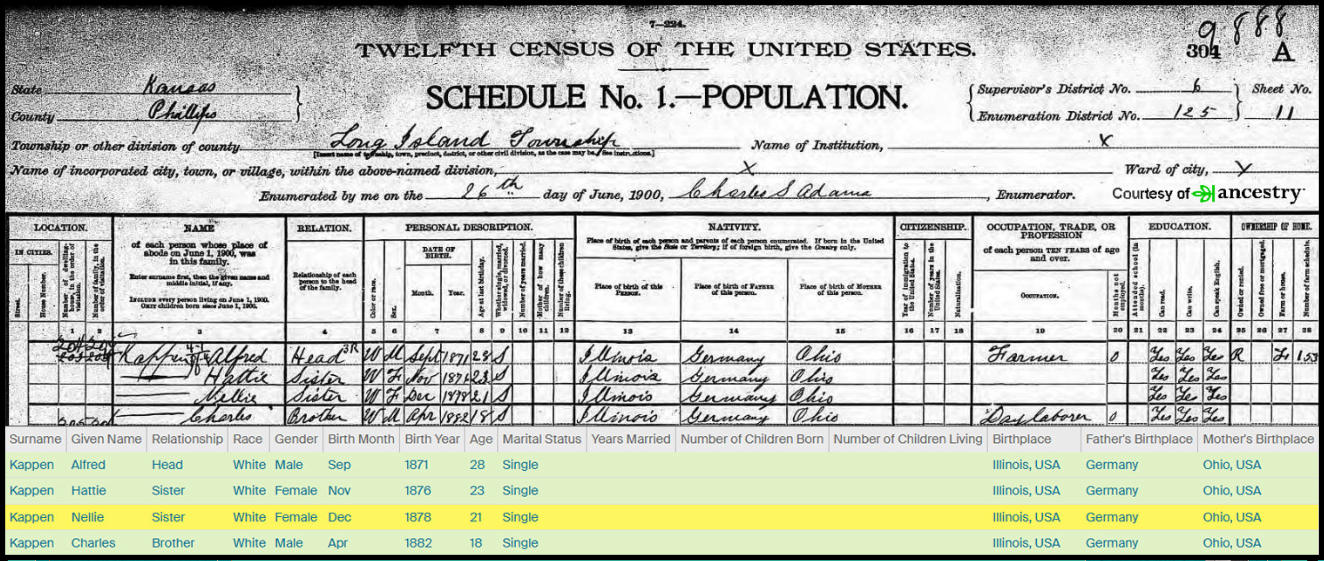 7—224.
TWELFTH CENSUS OF THE UNITED STATES.
9888
304 A
State Kansas
County Phillips
SCHEDULE No. 1.—POPULATION.
Supervisor's District No. 6
Enumeration District No. 125
Sheet No.
11
Township or other division of county Long Island Township Name of Institution, X
Name of incorporated city, town, or village, within the above-named division, X Ward of city, X
Enumerated by me on the 26th day of June, 1900, Charles S Adams, Enumerator.
Courtesy of ancestry
LOCATION. NAME RELATION. PERSONAL DESCRIPTION. NATIVITY. CITIZENSHIP. OCCUPATION, TRADE, OR PROFESSION EDUCATION. OWNERSHIP OF HOME.
IN CITIES.
Street.
House Number.
Number of dwelling-house, in the order of visitation.
Number of family, in the order of visitation.
of each person whose place of abode on June 1, 1900, was in this family.
Enter surname first, then the given name and middle initial, if any.
INCLUDE every person living on June 1, 1900.
OMIT children born since June 1, 1900.
Relationship of each person to the head of the family.
Color or race.
Sex.
DATE OF BIRTH.
Month. Year.
Age at last birthday.
Whether single, married, widowed, or divorced.
Number of years married.
Mother of how many children.
Number of these children living.
Place of birth of each person and parents of each person enumerated. If born in the United States, give the State or Territory; if of foreign birth, give the Country only.
Place of birth of this PERSON.
Place of birth of FATHER of this person.
Place of birth of MOTHER of this person.
Year of immigration to the United States.
Number of years in the United States.
Naturalization.
of each person TEN YEARS of age and over.
OCCUPATION.
Months not employed.
Attended school (in months).
Can read.
Can write.
Can speak English.
Owned or rented.
Owned free or mortgaged.
Farm or house.
Number of farm schedule.
1 2 3 4 5 6 7 8 9 10 11 12 13 14 15 16 17 18 19 20 21 22 23 24 25 26 27 28
Kappen Alfred Head W M Sept 1871 28 S Illinois Germany Ohio Farmer 0 Yes Yes Yes R F 153
Hattie Sister W F Nov 1876 23 S Illinois Germany Ohio Yes Yes Yes
Nellie Sister W F Dec 1878 21 S Illinois Germany Ohio Yes Yes Yes
Charles Brother W M Apr 1882 18 S Illinois Germany Ohio Day laborer 0 Yes Yes Yes
Surname Given Name Relationship Race Gender Birth Month Birth Year Age Marital Status Years Married Number of Children Born Number of Children Living Birthplace Father's Birthplace Mother's Birthplace
Kappen Alfred Head White Male Sep 1871 28 Single Illinois, USA Germany Ohio, USA
Kappen Hattie Sister White Female Nov 1876 23 Single Illinois, USA Germany Ohio, USA
Kappen Nellie Sister White Female Dec 1878 21 Single Illinois, USA Germany Ohio, USA
Kappen Charles Brother White Male Apr 1882 18 Single Illinois, USA Germany Ohio, USA